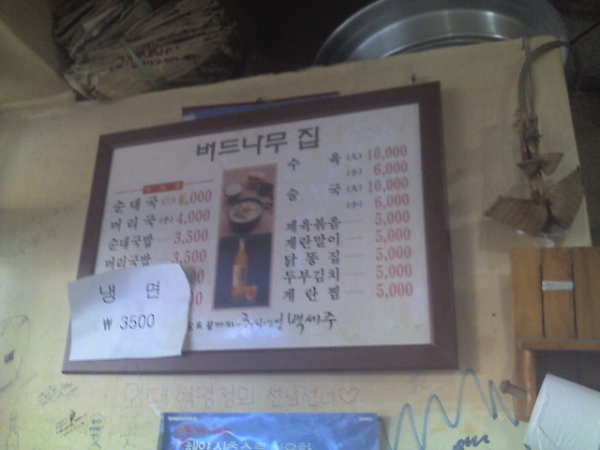 버드나무 집
수 육 (大) 10,000
(小) 6,000
술 국 (大) 10,000
(小) 6,000
제육볶음 5,000
계란말이 5,000
닭똥집 5,000
두부김치 5,000
계란찜 5,000
순대국 ,000
머리국 (小) 4,000
순대국밥 3,500
머리국밥 3,500
냉 면
₩ 3500
백세주
외대 혜영정의 선남선녀♡